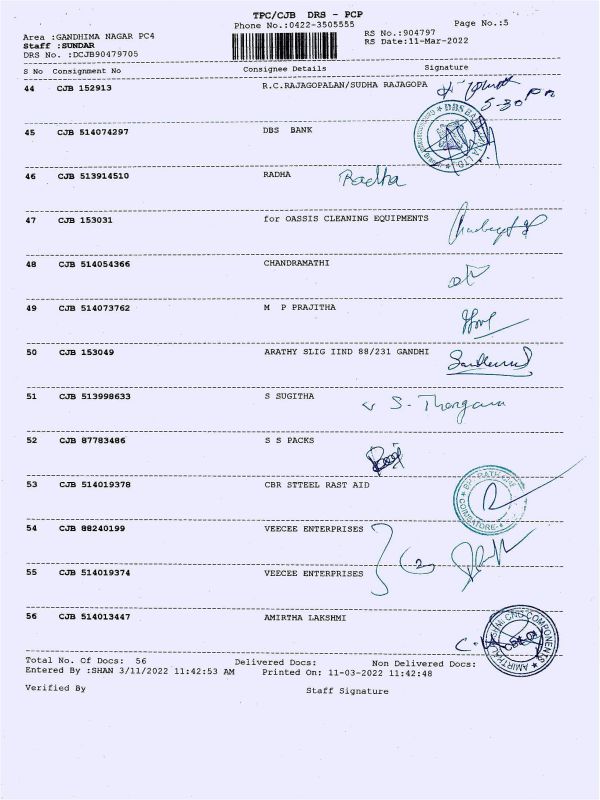 TPC/CJB DRS - PCP
Phone No.:0422-3505555 Page No.:5
Area :GANDHIMA NAGAR PC4 RS No.:904797
Staff :SUNDAR RS Date:11-Mar-2022
DRS No. :DCJB90479705
S No Consignment No Consignee Details Signature
44 CJB 152913 R.C.RAJAGOPALAN/SUDHA RAJAGOPA
5-30 pm
45 CJB 514074297 DBS BANK
46 CJB 513914510 RADHA Radha
47 CJB 153031 for OASSIS CLEANING EQUIPMENTS
48 CJB 514054366 CHANDRAMATHI
49 CJB 514073762 M P PRAJITHA
50 CJB 153049 ARATHY SLIG IIND 88/231 GANDHI
51 CJB 513998633 S SUGITHA S. Thangam
52 CJB 87783486 S S PACKS
53 CJB 514019378 CBR STTEEL RAST AID
COIMBATORE
54 CJB 88240199 VEECEE ENTERPRISES
(2)
55 CJB 514019374 VEECEE ENTERPRISES
56 CJB 514013447 AMIRTHA LAKSHMI
CNC COMPONENTS
Total No. Of Docs: 56 Delivered Docs: Non Delivered Docs:
Entered By :SHAN 3/11/2022 11:42:53 AM Printed On: 11-03-2022 11:42:48
Verified By Staff Signature